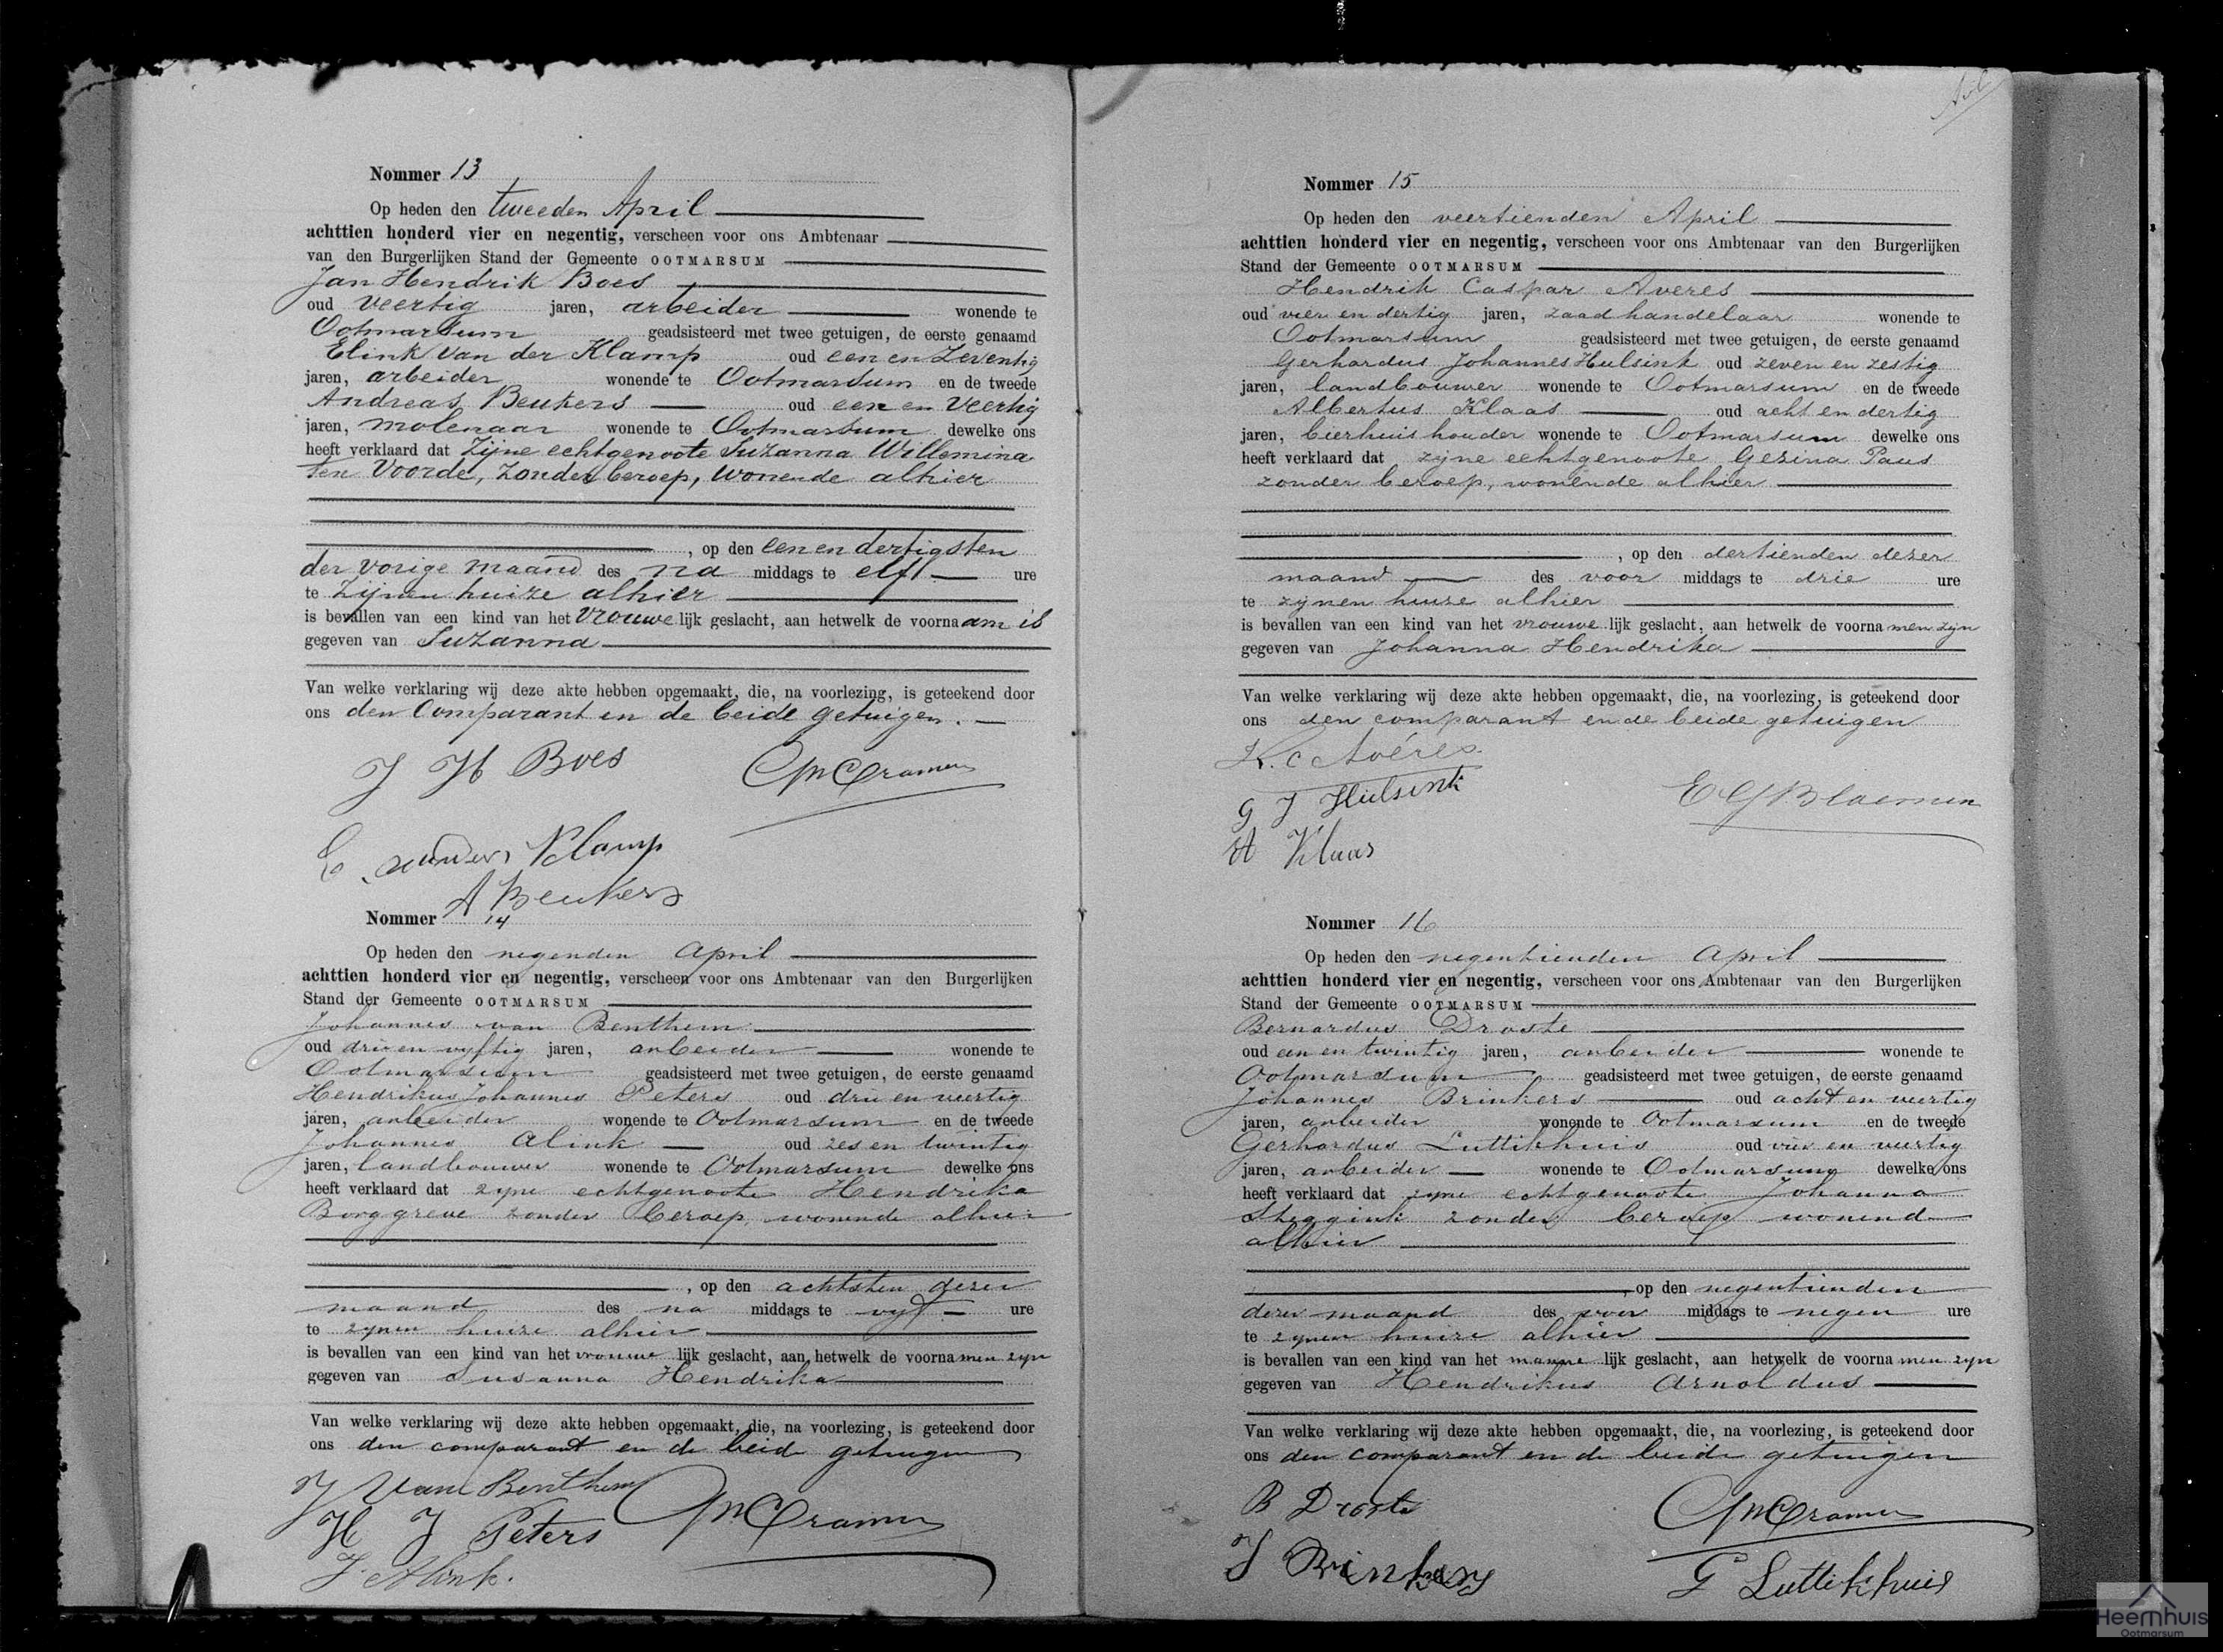 Nommer 13
Op heden den tweeden April
achttien honderd vier en negentig, verscheen voor ons Ambtenaar
van den Burgerlijken Stand der Gemeente OOTMARSUM
Jan Hendrik Boes
oud veertig jaren, arbeider wonende te
Ootmarsum geadsisteerd met twee getuigen, de eerste genaamd
Elink van der Klamp oud een en zeventig
jaren, arbeider wonende te Ootmarsum en de tweede
Andreas Beukers oud een en veertig
jaren, molenaar wonende te Ootmarsum dewelke ons
heeft verklaard dat zijne echtgenoote Suzanna Willemina
ten Voorde, zonder beroep, wonende alhier
, op den een en dertigsten
der vorige maand des na middags te elf ure
te zijnen huize alhier
is bevallen van een kind van het vrouwelijk geslacht, aan hetwelk de voornaam is
gegeven van Suzanna
Van welke verklaring wij deze akte hebben opgemaakt, die, na voorlezing, is geteekend door
ons den Comparant en de beide getuigen.
J H Boes
Cramer
E. van der Klamp
A Beukers
Nommer 14
Op heden den negenden April
achttien honderd vier en negentig, verscheen voor ons Ambtenaar van den Burgerlijken
Stand der Gemeente OOTMARSUM
Johannes van Benthem
oud drie en vyftig jaren, arbeider wonende te
Ootmarsum geadsisteerd met twee getuigen, de eerste genaamd
Hendrikus Johannes Peters oud drie en veertig
jaren, arbeider wonende te Ootmarsum en de tweede
Johannes Alink oud zes en twintig
jaren, landbouwer wonende te Ootmarsum dewelke ons
heeft verklaard dat zyne echtgenoote Hendrika
Borggreve zonder beroep, wonende alhier
, op den achtsten dezer
maand des na middags te vyf ure
te zynen huize alhier
is bevallen van een kind van het vrouwelijk geslacht, aan hetwelk de voornamen zyn
gegeven van Susanna Hendrika
Van welke verklaring wij deze akte hebben opgemaakt, die, na voorlezing, is geteekend door
ons den comparant en de beide getuigen
J Van Benthem
H J Peters
Cramer
J Alink.
Nommer 15
Op heden den veertienden April
achttien honderd vier en negentig, verscheen voor ons Ambtenaar van den Burgerlijken
Stand der Gemeente OOTMARSUM
Hendrik Caspar Averes
oud vier en dertig jaren, zaadhandelaar wonende te
Ootmarsum geadsisteerd met twee getuigen, de eerste genaamd
Gerhardus Johannes Hulsink oud zeven en zestig
jaren, landbouwer wonende te Ootmarsum en de tweede
Albertus Klaas oud acht en dertig
jaren, bierhuishouder wonende te Ootmarsum dewelke ons
heeft verklaard dat zijne echtgenoote Gesina Paus
zonder beroep, wonende alhier
, op den dertienden dezer
maand des voor middags te drie ure
te zijnen huize alhier
is bevallen van een kind van het vrouwelijk geslacht, aan hetwelk de voornamen zijn
gegeven van Johanna Hendrika
Van welke verklaring wij deze akte hebben opgemaakt, die, na voorlezing, is geteekend door
ons den comparant en de beide getuigen
H. C Avéres
G J Hulsink
E G Bloemen
A Klaas
Nommer 16
Op heden den negentienden April
achttien honderd vier en negentig, verscheen voor ons Ambtenaar van den Burgerlijken
Stand der Gemeente OOTMARSUM
Bernardus Droste
oud een en twintig jaren, arbeider wonende te
Ootmarsum geadsisteerd met twee getuigen, de eerste genaamd
Johannes Brinkers oud acht en veertig
jaren, arbeider wonende te Ootmarsum en de tweede
Gerhardus Luttikhuis oud vier en veertig
jaren, arbeider wonende te Ootmarsum dewelke ons
heeft verklaard dat zyne echtgenoote Johanna
Steggink zonder beroep wonend
alhier
, op den negentienden
dezer maand des voor middags te negen ure
te zynen huize alhier
is bevallen van een kind van het mannelijk geslacht, aan hetwelk de voornamen zyn
gegeven van Hendrikus Arnoldus
Van welke verklaring wij deze akte hebben opgemaakt, die, na voorlezing, is geteekend door
ons den comparant en de beide getuigen
B Droste
Cramer
J Brinkers
G Luttikhuis
Heemhuis
Ootmarsum